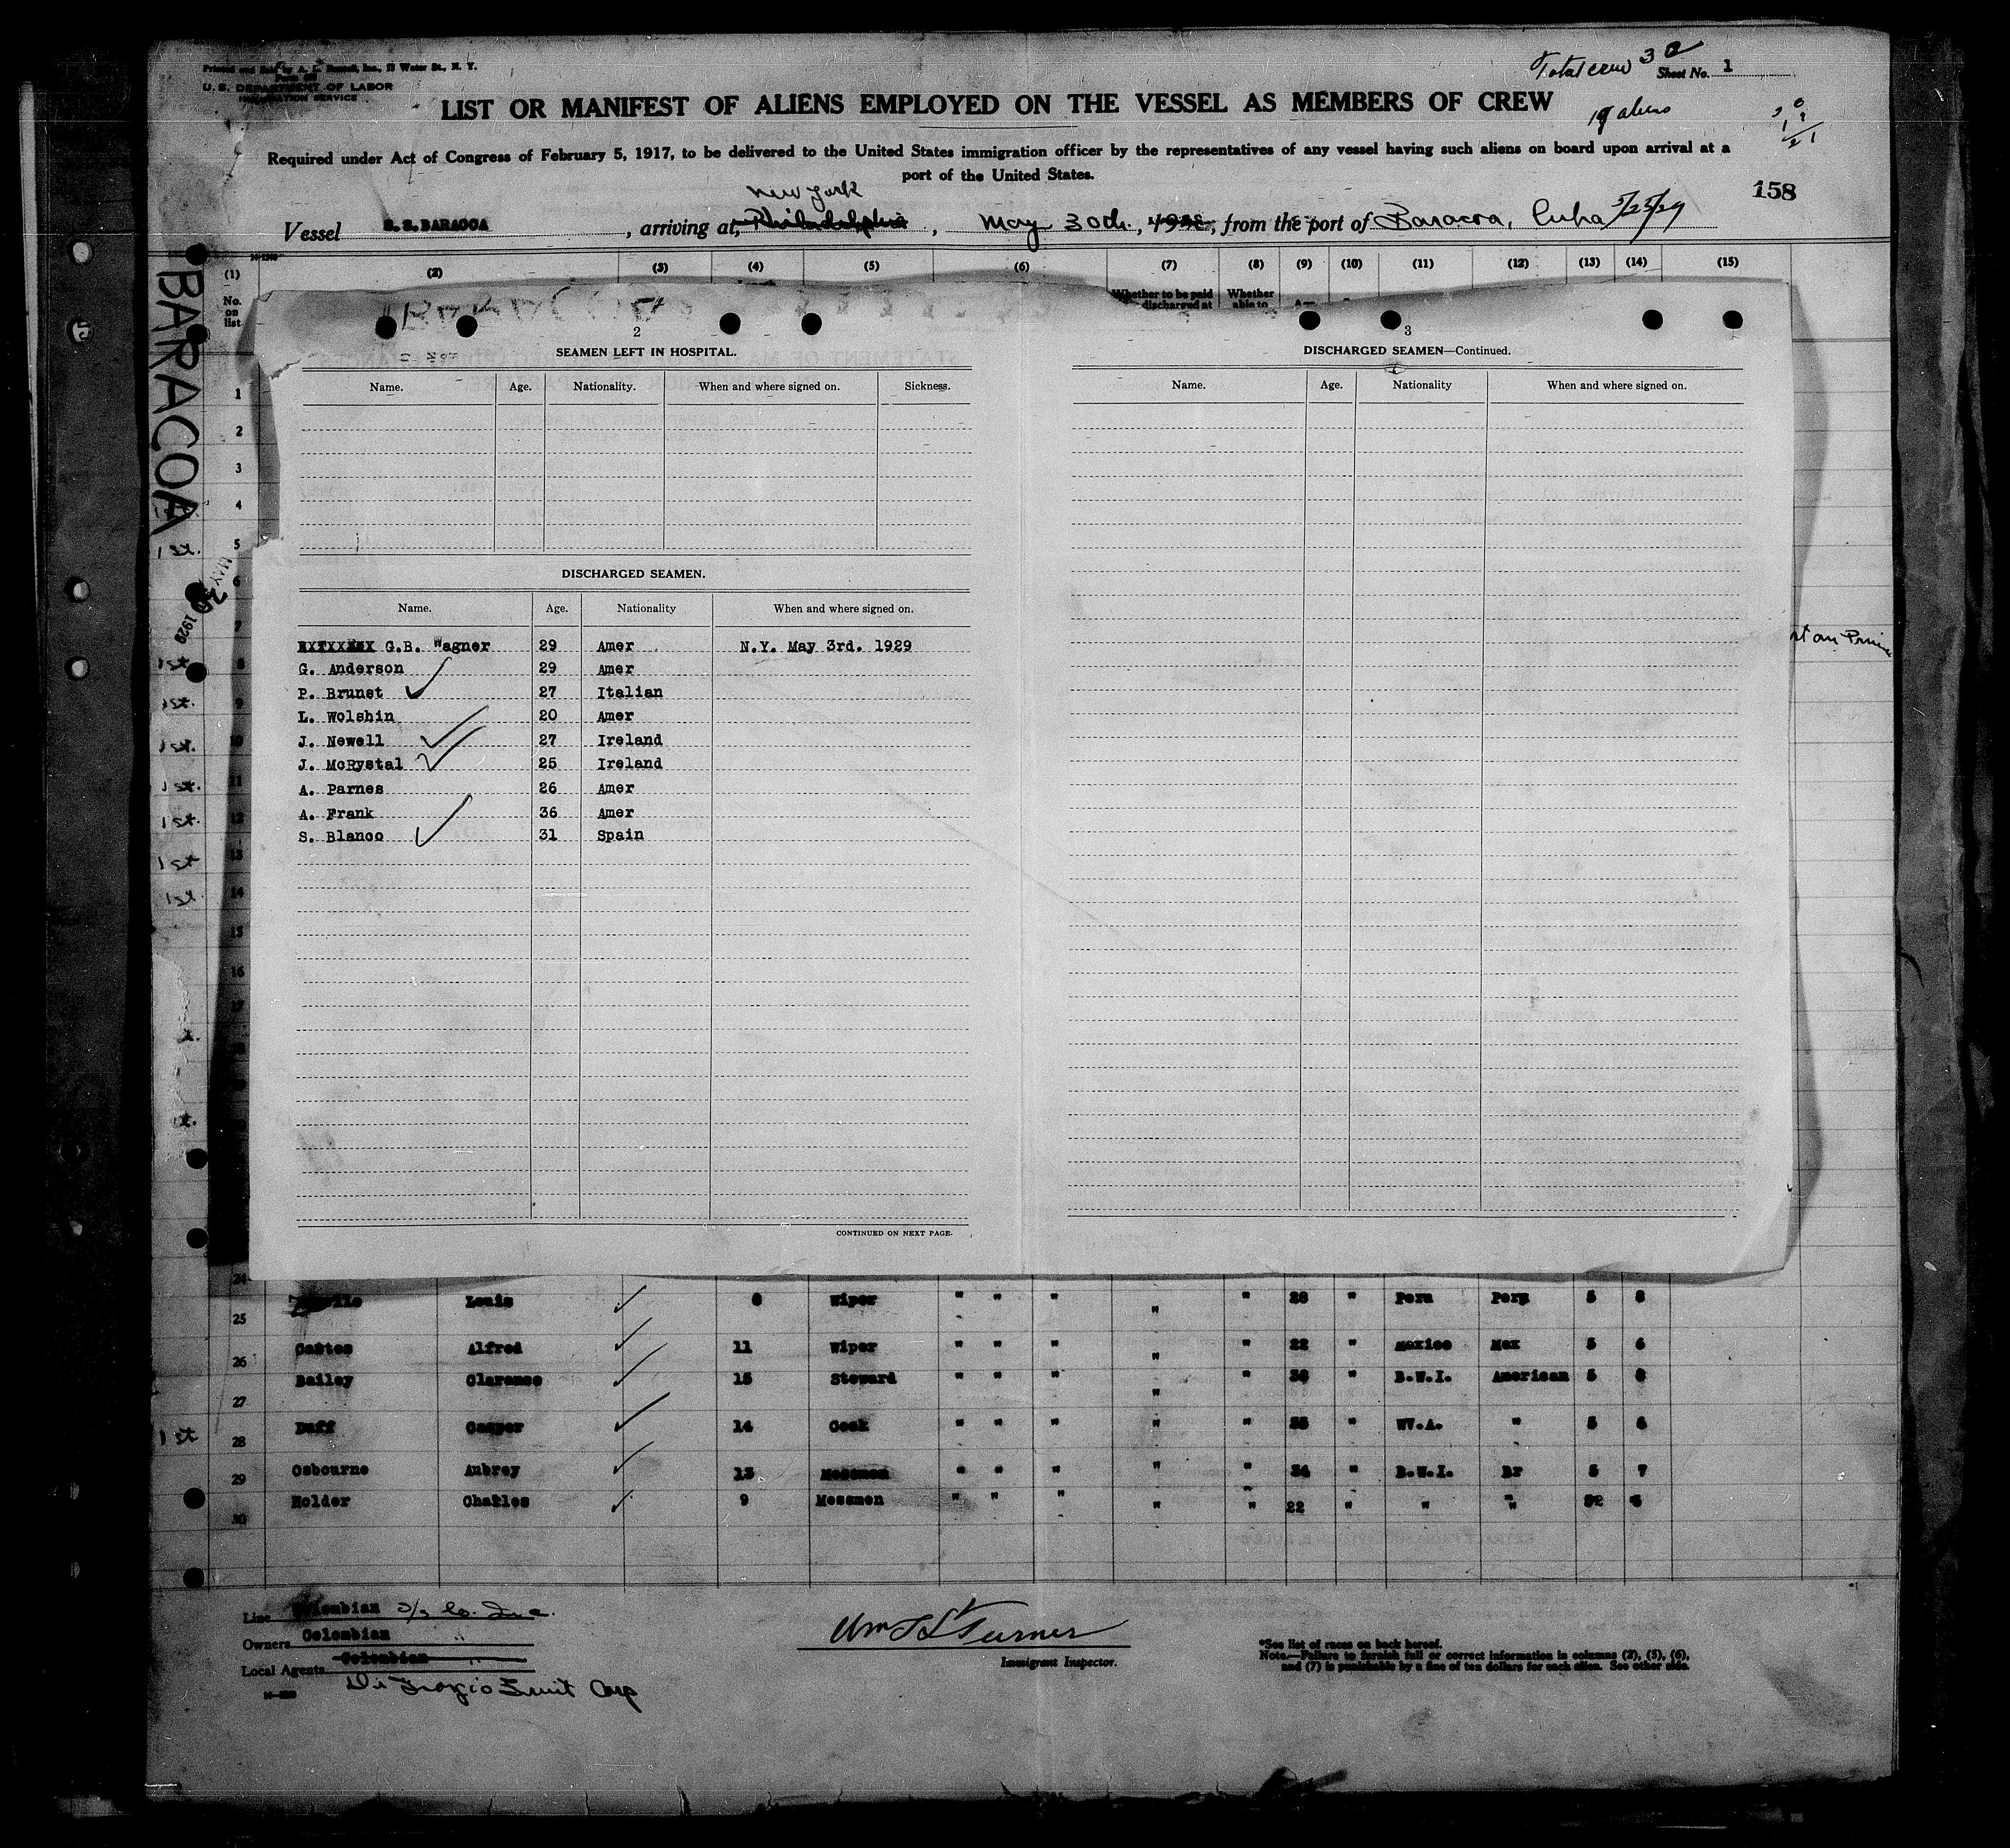 Printed and Sold by A. L. Russell, Inc., 13 Water St., N. Y.
U. S. DEPARTMENT OF LABOR
IMMIGRATION SERVICE
Total crew 32
Sheet No. 1
LIST OR MANIFEST OF ALIENS EMPLOYED ON THE VESSEL AS MEMBERS OF CREW
19 aliens
Required under Act of Congress of February 5, 1917, to be delivered to the United States immigration officer by the representatives of any vessel having such aliens on board upon arrival at a
port of the United States.
158
New York
Vessel S.S.BARACOA, arriving at, Philadelphia, May 30th., 192, from the port of Baracoa, Cuba 5/25/29
(1) (2) (3) (4) (5) (6) (7) (8) (9) (10) (11) (12) (13) (14) (15)
No. on list
Whether to be paid discharged at
Whether able to
BARACOA
MAY 30 1929
2
SEAMEN LEFT IN HOSPITAL.
Name. Age. Nationality. When and where signed on. Sickness.
DISCHARGED SEAMEN.
Name. Age. Nationality When and where signed on.
G.B. Wagner 29 Amer N.Y. May 3rd. 1929
G. Anderson 29 Amer
P. Brunet 27 Italian
L. Wolshin 20 Amer
J. Newell 27 Ireland
J. McRystal 25 Ireland
A. Parnes 26 Amer
A. Frank 36 Amer
S. Blanco 31 Spain
CONTINUED ON NEXT PAGE.
3
DISCHARGED SEAMEN—Continued.
Name. Age. Nationality When and where signed on.
1
2
3
4
5 1st.
6
7
8 1st
9 1st.
10 1st.
11 1st.
12 1st.
13 1st
14 1st
15
16
17
24
25 Louis Wiper " " " " " 28 " Peru Peru 5 8
26 Castos Alfred 11 Wiper " " " " " 22 " Mexico Mex 5 6
27 Bailey Clarence 15 Steward " " " " " 36 " B.W.I. American 5 8
28 1st Duff Casper 14 Cook " " " " " 35 " WV.A. " 5 6
29 Osbourne Aubrey 13 Messmen " " " " " 34 " B.W.I. Br 5 7
30 Holder Charles 9 Messmen " " " " " 22 " " "
Line Colombian S/S Co. Inc.
Owners Colombian "
Local Agents Colombian "
Di Giorgio Fruit Corp
Wm S Turner
Immigrant Inspector.
*See list of races on back hereof.
Note.—Failure to furnish full or correct information in columns (2), (5), (6),
and (7) is punishable by a fine of ten dollars for each alien. See other side.